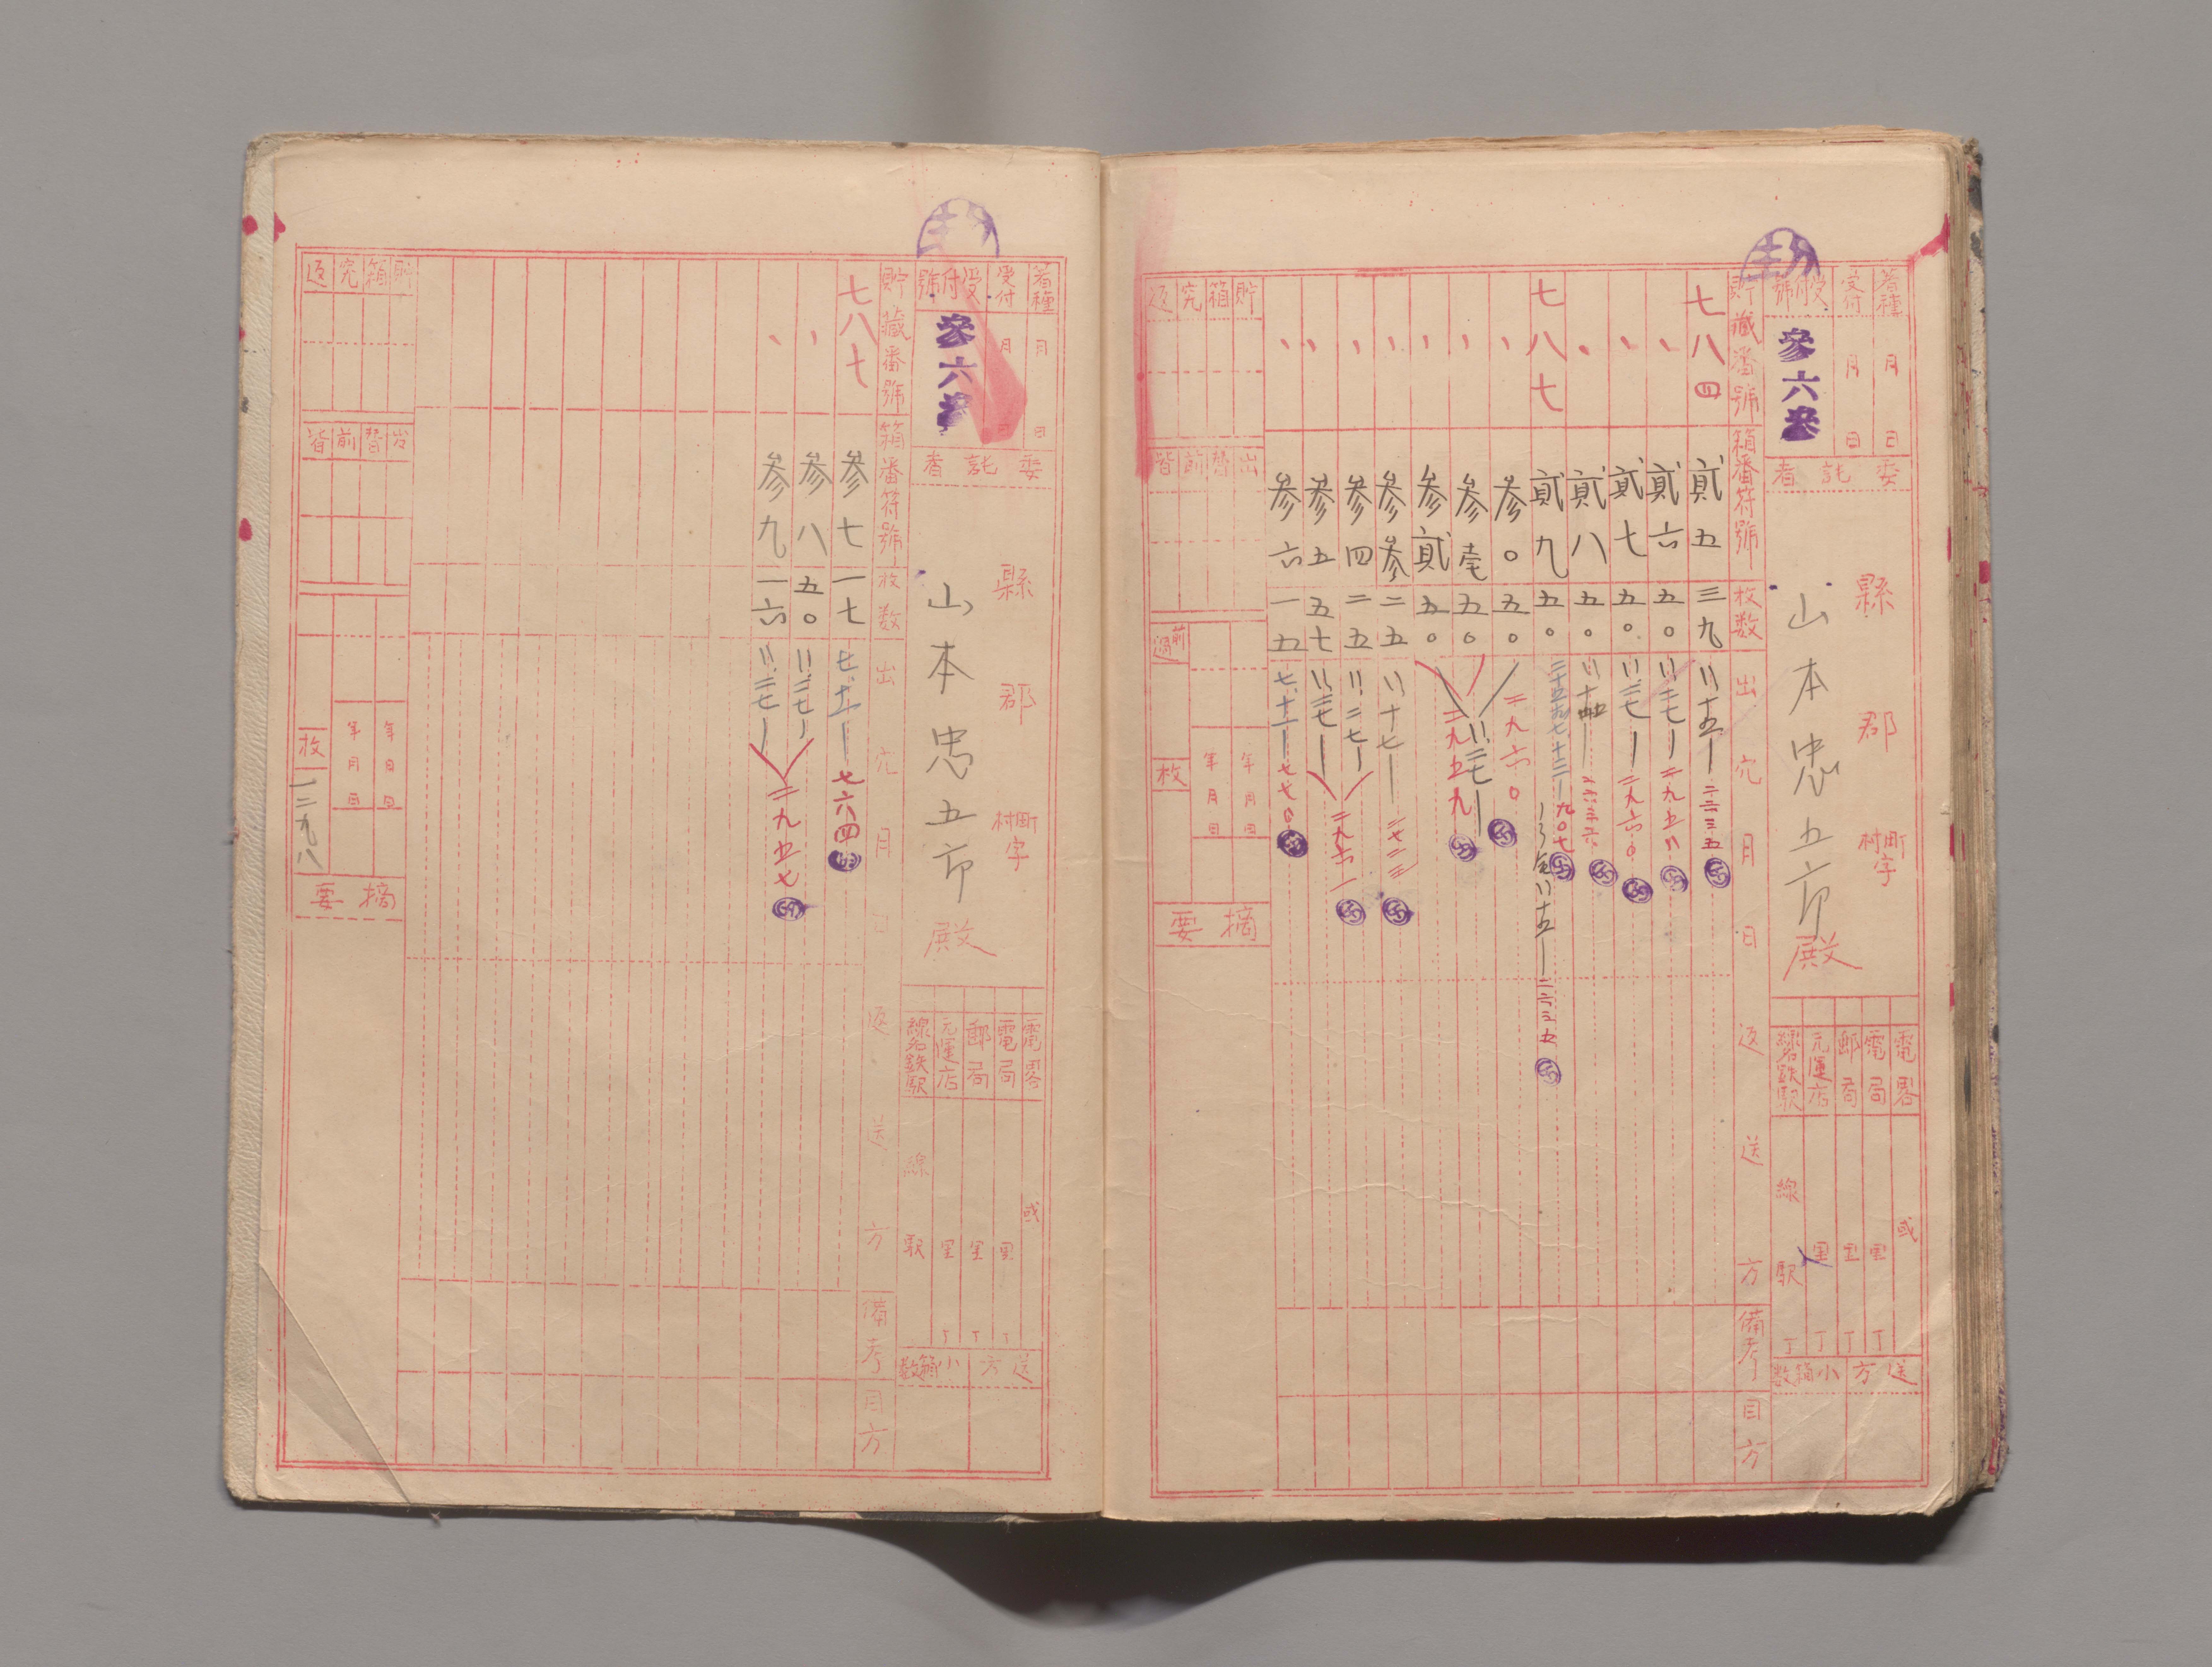 着種
月
日
受付
月
日
受付號
参六参
委託者
縣
郡
町村字
山本忠五郎
殿
電畧
電局
郵局
元運店
線名鉄駅
或
里
里
里
線
駅
丁
丁
丁
丁
送方
小箱数
貯藏番號
箱番符號
枚数
出穴月日
返送方
備考
目方
七八四
貮五
三九
一一、十五
二三三五
〃
貮六
五〇
一一、二七
二九五八
〃
貮七
五〇
一一、二七
二九六〇
〃
貮八
五〇
七八七
貮九
五〇
九〇七
一一、十五
二六三五
〃
参〇
五〇
二九六〇
〃
参壱
五〇
一一、二七
二九五九
〃
参貮
五〇
〃
参参
二五
一一、十七
二七二三
〃
参四
二五
一一、二七
〃
参五
五七
一一、二七
二九六一
〃
参六
一五
七、十二
七七〇
貯箱究返
出替前皆
前過
年月日
年月日
枚
摘要
着種
月
日
受付
月
受付號
参六参
委託者
縣
郡
町村字
山本忠五郎
殿
電畧
電局
郵局
元運店
線名鉄駅
或
里
里
里
線
駅
丁
丁
丁
送方
小箱数
貯藏番號
箱番符號
枚数
出穴月日
返送方
備考
目方
七八七
参七
一七
七六四
〃
参八
五〇
一一、二七
〃
参九
一六
一一、二七
二九五七
貯箱究返
出替前皆
年月日
年月日
枚
一二九八
摘要